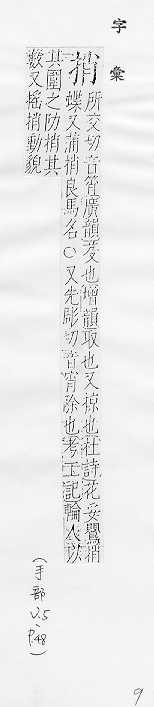 字彙
捎 所交切音筲廣韻芟也增韻取也又掠也杜詩花妥鶯捎
蝶又蒲捎良馬名○又先彫切音宵除也考工記輪人以
其圍之阞捎其
藪又搖捎動貌
(手部 V.5 - P.48)
9